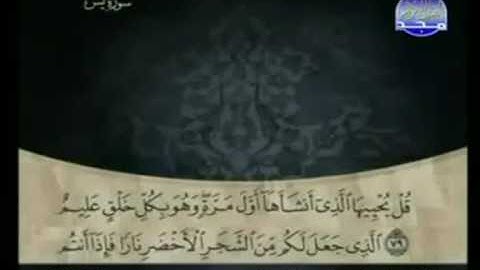 سورة يس
مجد
قُلْ يُحْيِيهَا ٱلَّذِىٓ أَنشَأَهَآ أَوَّلَ مَرَّةٍ وَهُوَ بِكُلِّ خَلْقٍ عَلِيمٌ
٧٩ ٱلَّذِى جَعَلَ لَكُم مِّنَ ٱلشَّجَرِ ٱلْأَخْضَرِ نَارًا فَإِذَآ أَنتُم